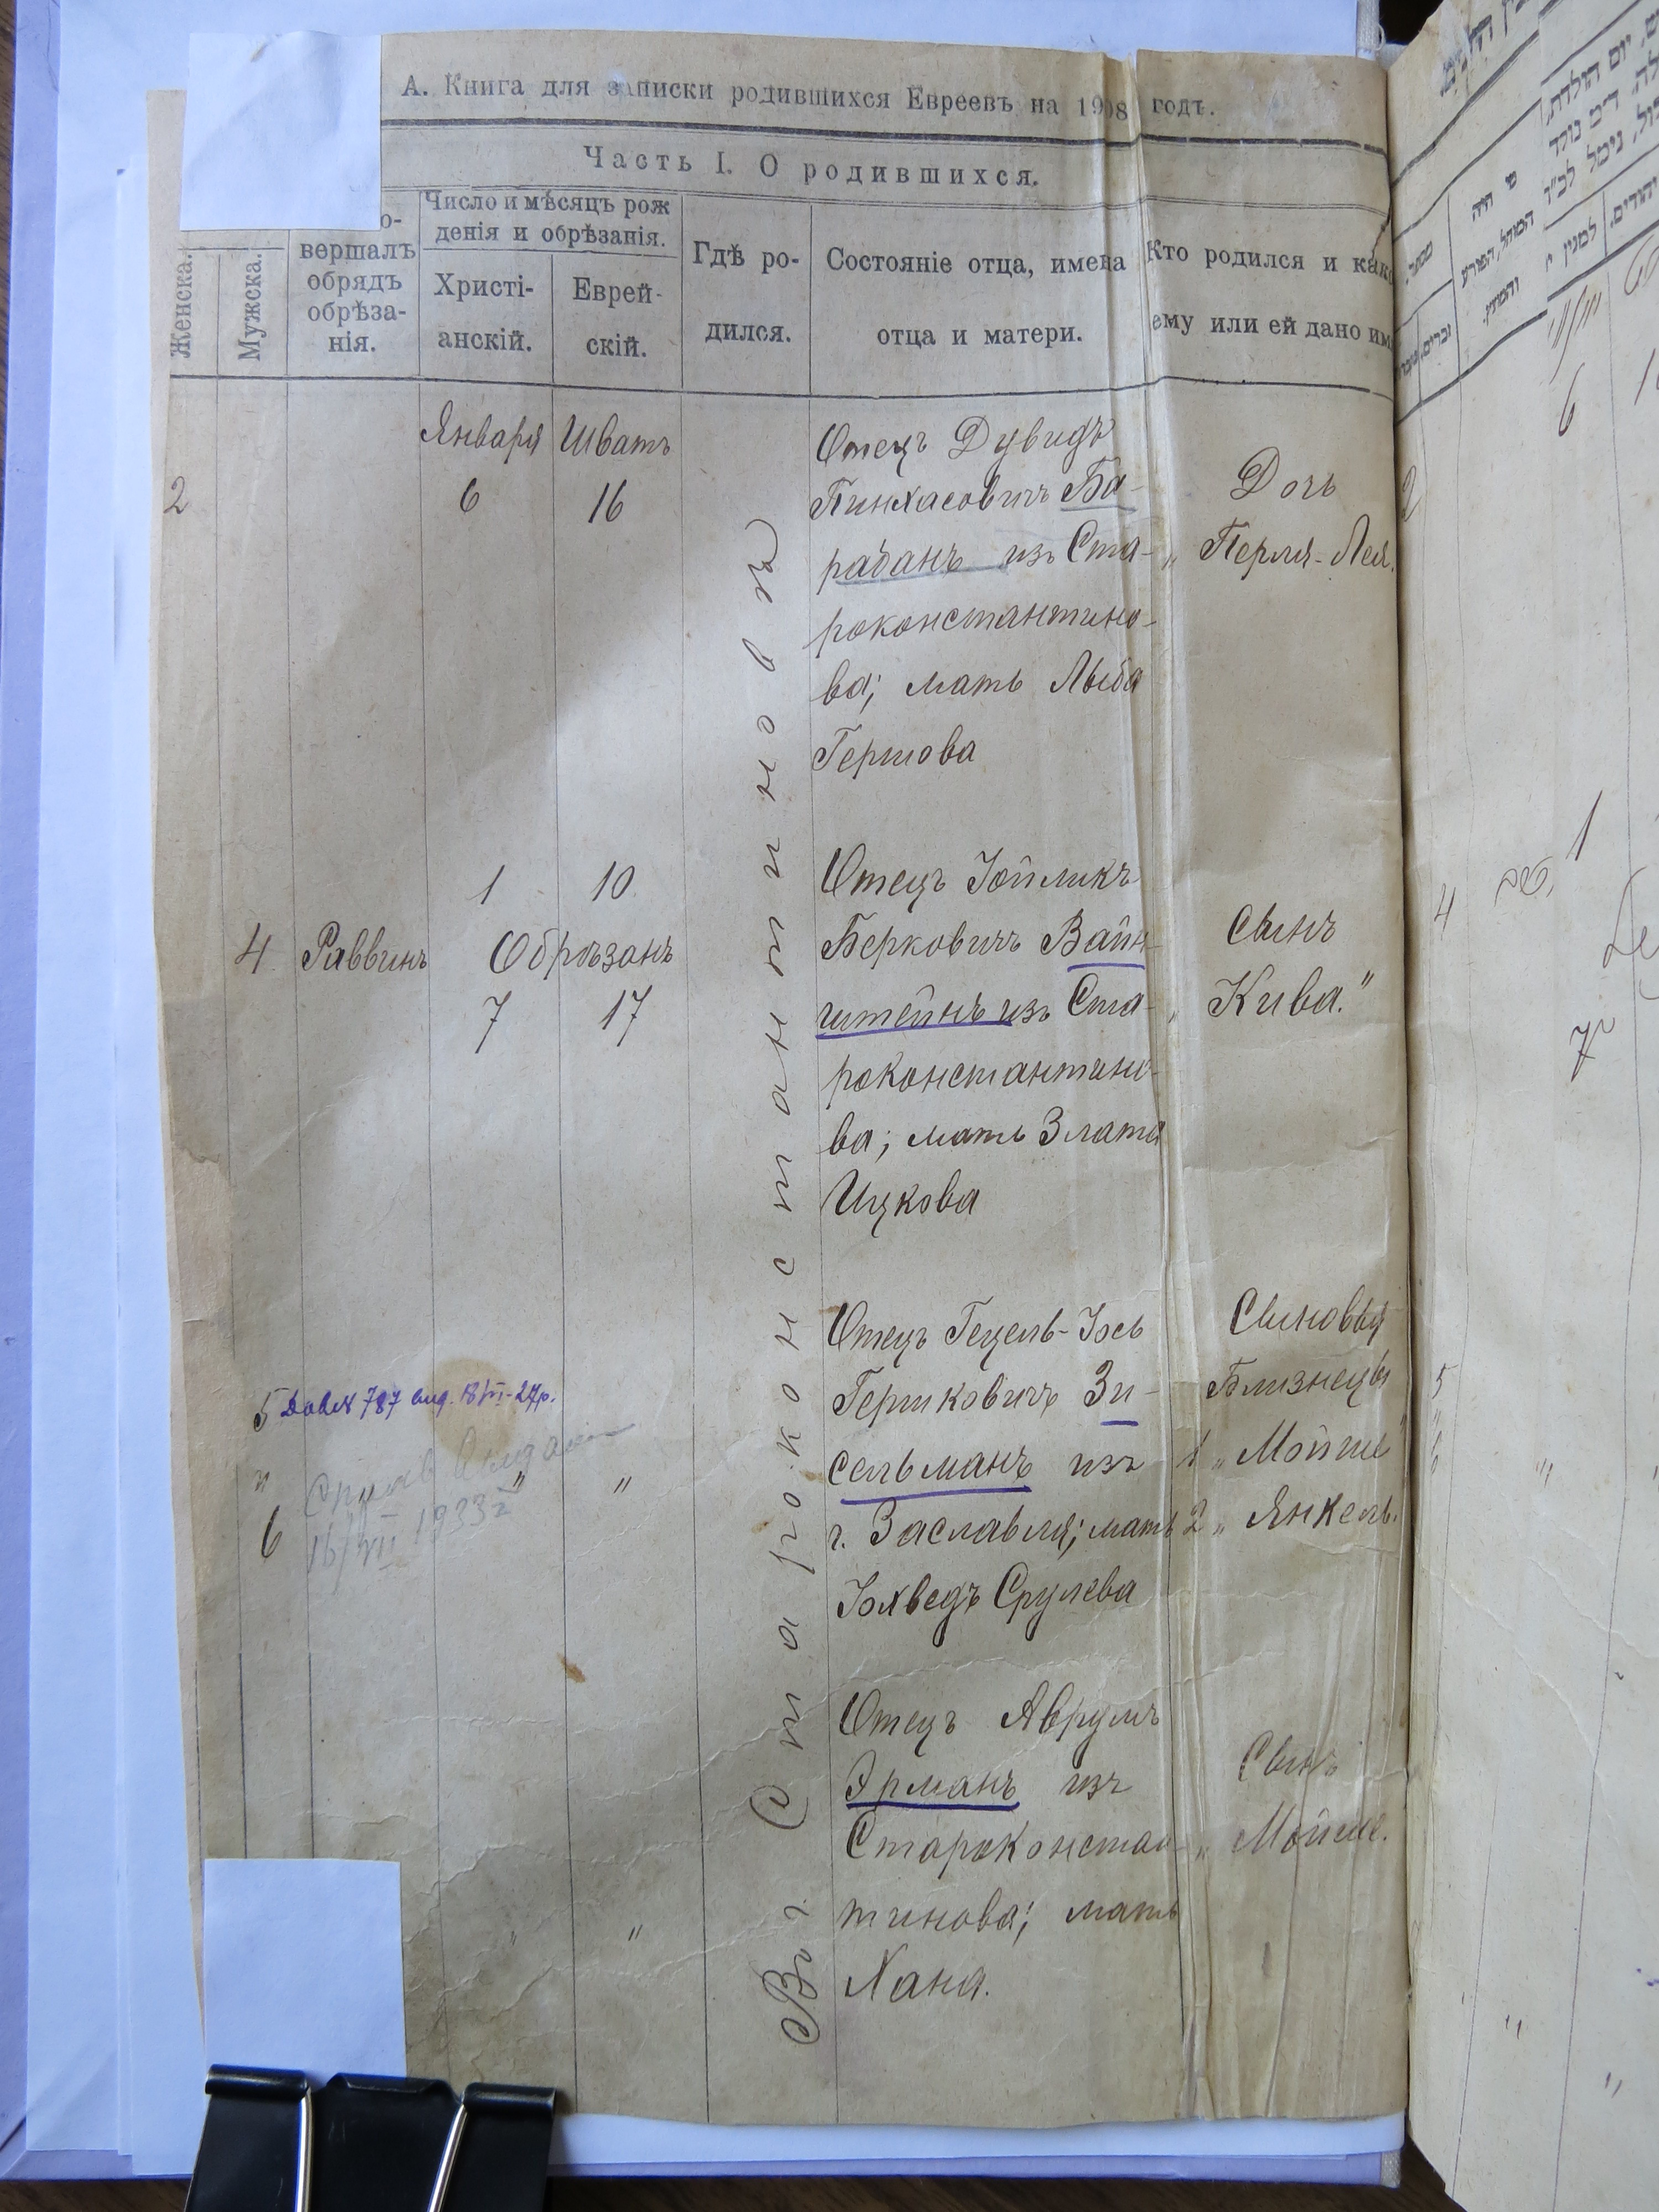 А. Книга для записки родившихся Евреевъ на 1908 годъ.
Часть I. О родившихся.
Женска.
Мужска.
о-
вершалъ
обрядъ
обрѣза-
нія.
Число и мѣсяцъ рож
денія и обрѣзанія.
Христі-
анскій.
Еврей-
скій.
Гдѣ ро-
дился.
Состояніе отца, имена
отца и матери.
Кто родился и како
ему или ей дано им
Января Шватъ
2
6 16
Отецъ Дувидъ
Пинхасовичъ Ба-
рабанъ изъ Ста-
роконстантино-
ва; мать Лыба
Гершова
Дочь
„Перля-Лея.
1 10
4 Раввинъ Обрѣзанъ
7 17
Отецъ Іойликъ
Берковичъ Вайн-
штейнъ изъ Ста-
роконстантино-
ва; мать Злата
Ицкова
Сынъ
„Кива."
5
"
6
16/VII 1933 г
" "
Отецъ Гецель-Іось
Гершковичъ Зи-
сельманъ изъ
г. Заславля; мать
Іохведъ Срулева
Сыновья
Близнецы
1 „Мойше"
2 „Янкель.
" "
Отецъ Аврумъ
Эрманъ изъ
Староконстан-
тинова; мать
Хана.
Сынъ
„Мойше.
Въ г. Староконстантиновѣ
2
4
5
"
6
6
1
7